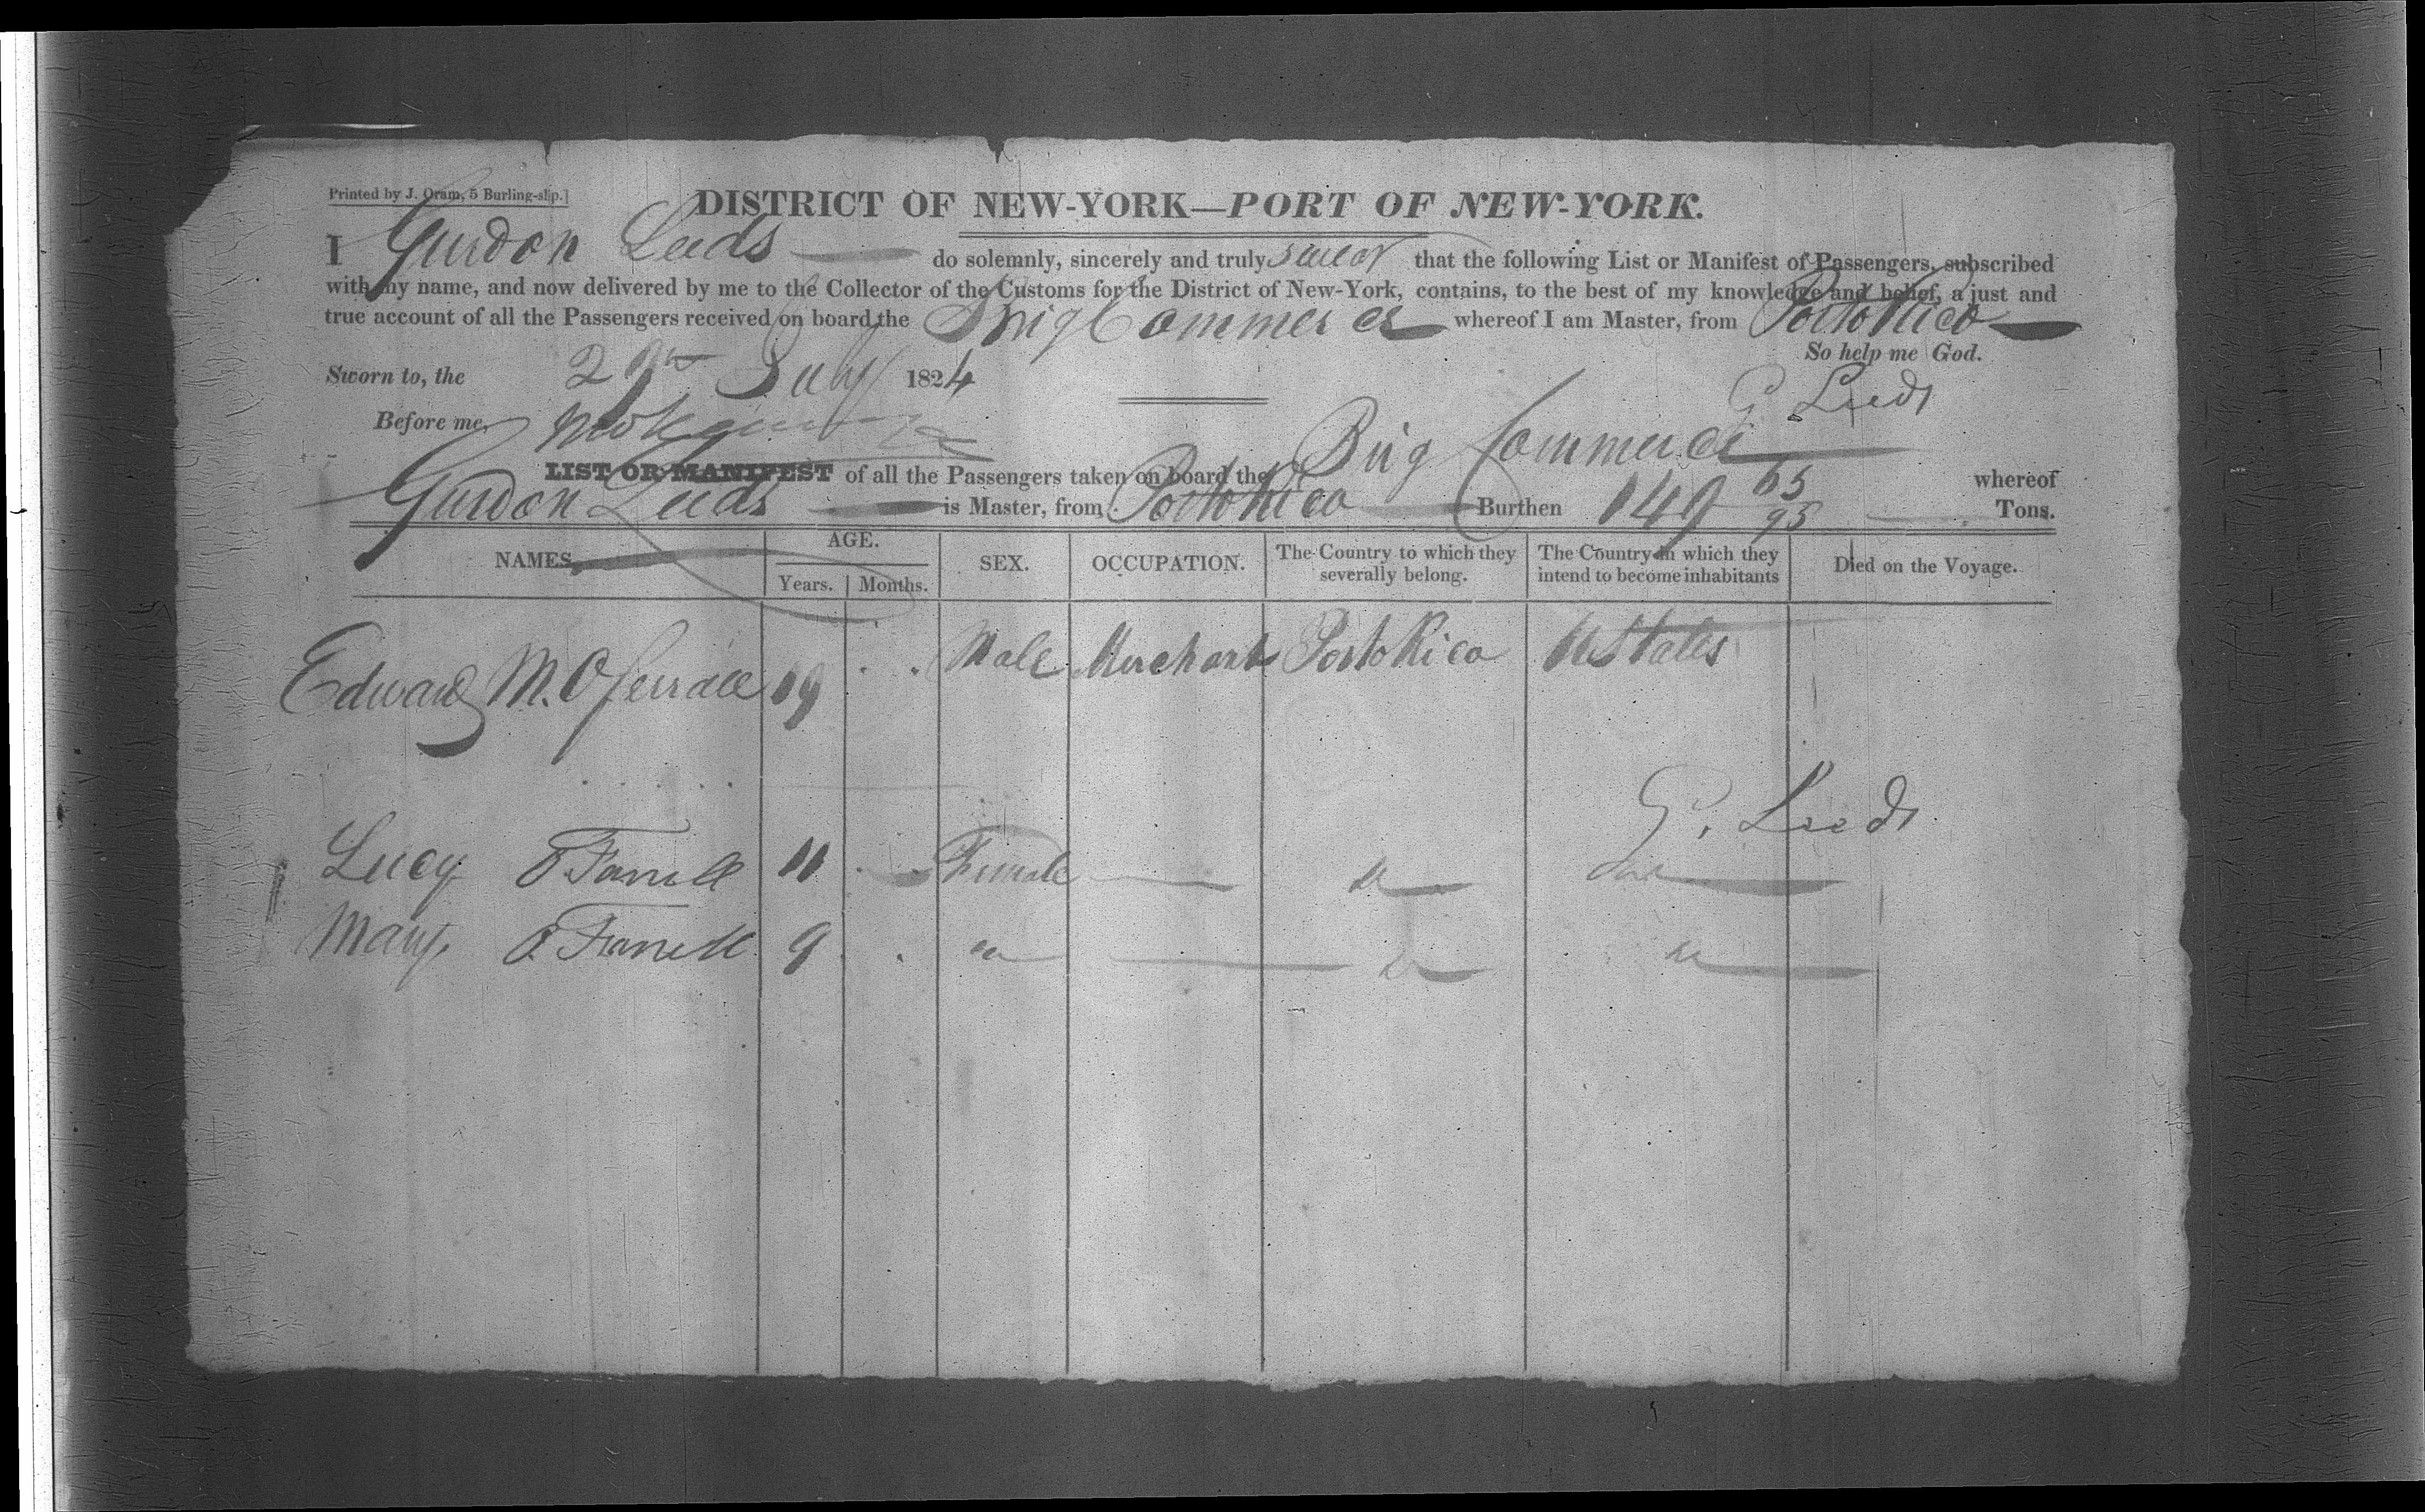 Printed by J. Oram, 5 Burling-slip.]
DISTRICT OF NEW-YORK—PORT OF NEW-YORK.
I Gurdon Leeds do solemnly, sincerely and truly swear that the following List or Manifest of Passengers, subscribed
with my name, and now delivered by me to the Collector of the Customs for the District of New-York, contains, to the best of my knowledge and belief, a just and
true account of all the Passengers received on board the Brig Commerce whereof I am Master, from Porto Rico
So help me God.
Sworn to, the 29th July 1824
G Leeds
Before me,
LIST OR MANIFEST of all the Passengers taken on board the Brig Commerce whereof
Gurdon Leeds is Master, from Porto Rico Burthen 149 65/95 Tons.
NAMES. AGE. Years. Months. SEX. OCCUPATION. The Country to which they severally belong. The Country in which they intend to become inhabitants Died on the Voyage.
Edward M. Oferrall 19 Male Merchant Porto Rico UStates
G. Leeds
Lucy O Farrell 11 Female
Mary O. Farrell 9